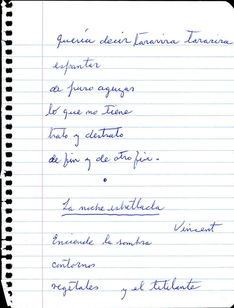 Quería decir Tararira tararira
espantar
de puro agujas
lo que no tiene
trato y destrato
de fin y de otro fin.
La noche estrellada
Vincent
Enciende la sombra
contornos
vegetales y el titilante